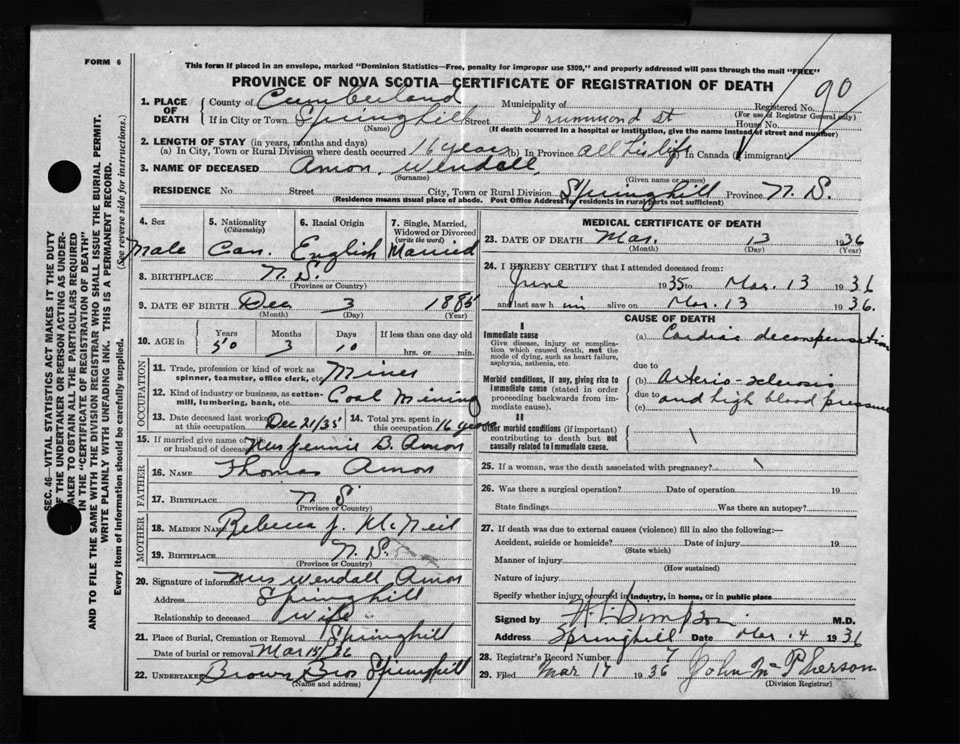 FORM 6
This form if placed in an envelope, marked "Dominion Statistics—Free, penalty for improper use $300," and properly addressed will pass through the mail "FREE"
PROVINCE OF NOVA SCOTIA—CERTIFICATE OF REGISTRATION OF DEATH
90
1. PLACE OF DEATH
County of Cumberland Municipality of Registered No.
(For use of Registrar General only)
If in City or Town Springhill Street Drummond St House No.
(Name) (If death occurred in a hospital or institution, give the name instead of street and number)
2. LENGTH OF STAY (in years, months and days)
(a) In City, Town or Rural Division where death occurred 16 years (b) In Province all his life (c) In Canada (if immigrant)
3. NAME OF DECEASED Amon, Wendall
(Surname) (Given name or names)
RESIDENCE No. Street City, Town or Rural Division Springhill Province N. S.
(Residence means usual place of abode. Post Office Address for residents in rural parts not sufficient)
4. Sex 5. Nationality (Citizenship) 6. Racial Origin 7. Single, Married, Widowed or Divorced (write the word)
Male Can. English Married
8. BIRTHPLACE N. S.
(Province or Country)
9. DATE OF BIRTH Dec 3 1885
(Month) (Day) (Year)
10. AGE in Years Months Days If less than one day old
50 3 10 hrs. or min.
OCCUPATION
11. Trade, profession or kind of work as spinner, teamster, office clerk, etc. Miner
12. Kind of industry or business, as cotton-mill, lumbering, bank, etc. Coal Mining
13. Date deceased last worked at this occupation Dec 21/35 14. Total yrs. spent in this occupation 16 years
15. If married give name of wife or husband of deceased Mrs Jennie B. Amon
FATHER
16. NAME Thomas Amon
17. BIRTHPLACE N S
(Province or Country)
MOTHER
18. MAIDEN NAME Rebecca J. McNeil
19. BIRTHPLACE N. S.
(Province or Country)
20. Signature of informant Mrs Wendall Amon
Address Springhill
Relationship to deceased wife
21. Place of Burial, Cremation or Removal Springhill
Date of burial or removal Mar 15/36
22. UNDERTAKER Brown Bros Springhill
(Name and address)
MEDICAL CERTIFICATE OF DEATH
23. DATE OF DEATH Mar. 13 1936
(Month) (Day) (Year)
24. I HEREBY CERTIFY that I attended deceased from:
June 1935 to Mar. 13 1936
and last saw him alive on Mar. 13 1936.
CAUSE OF DEATH
I
Immediate cause
Give disease, injury or complication which caused death, not the mode of dying, such as heart failure, asphyxia, asthenia, etc.
(a) Cardiac decompensation
due to
Morbid conditions, if any, giving rise to immediate cause (stated in order proceeding backwards from immediate cause).
(b) Arterio-sclerosis
due to and high blood pressure
(c)
II
Other morbid conditions (if important) contributing to death but not causally related to immediate cause.
25. If a woman, was the death associated with pregnancy?
26. Was there a surgical operation? Date of operation 19
State findings Was there an autopsy?
27. If death was due to external causes (violence) fill in also the following:—
Accident, suicide or homicide? Date of injury 19
(State which)
Manner of injury
(How sustained)
Nature of injury
Specify whether injury occurred in industry, in home, or in public place
Signed by M.D.
Address Springhill Date Mar. 14 1936
28. Registrar's Record Number 7
29. Filed Mar 17 1936 John McPherson
(Division Registrar)
SEC. 46—VITAL STATISTICS ACT MAKES IT THE DUTY
OF THE UNDERTAKER OR PERSON ACTING AS UNDER-
TAKER TO OBTAIN ALL THE PARTICULARS REQUIRED
IN THE "CERTIFICATE OF REGISTRATION OF DEATH"
AND TO FILE THE SAME WITH THE DIVISION REGISTRAR WHO SHALL ISSUE THE BURIAL PERMIT.
WRITE PLAINLY WITH UNFADING INK. THIS IS A PERMANENT RECORD.
Every item of information should be carefully supplied. (See reverse side for instructions.)